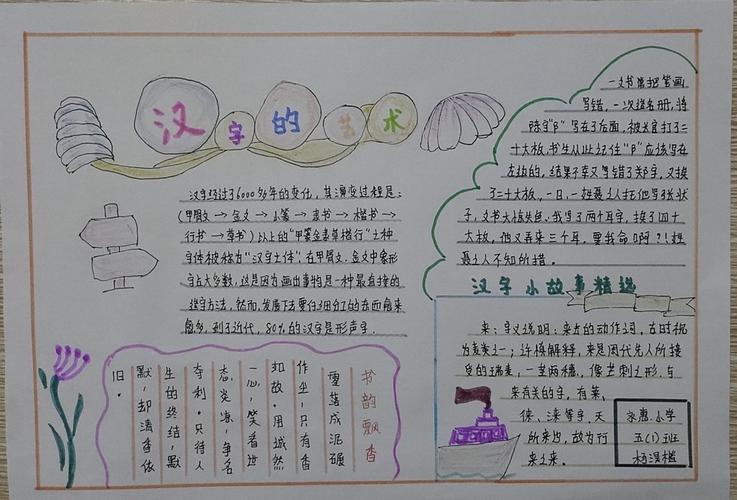 汉字的艺术
汉字经过了6000多年的变化，其演变过程是：
(甲骨文→金文→小篆→隶书→楷书→
行书→草书)以上的"甲篆金隶草楷行"七种
字体被称为"汉字七体"在甲骨文、金文中象形
字占大多数，这是因为画出事物是一种最直接的
造字方法，然而，发展下去要仔细的东西愈来
愈多，到了近代，80%的汉字是形声字。
一文书常把笔画
写错，一次造名册，将
陈字"阝"写在了右面，被
十大板，书生从此记住"阝"应该写在
左边的，结果
了二十大板，一日，一姓聂之人托他写张状
子，文书大惊失色，我写了两个耳字，挨了四十
大板，他又弄来三个耳，要我命啊？！姓
聂之人不知所措。
汉字小故事精选
来：字义说明：来去的动作词，
为麦类之一；许慎解释，来是周代先人所接
受的瑞麦，一麦两穗，像芒刺之形，与
来有关的字，有莱、
徕、涞等字，天
所来也，故为行
来之来。
书韵飘香
零落成泥碾
作尘，只有香
如故。用淡然
一心，笑看世
态炎凉，争名
夺利。只待人
生的终结，默
默，却清香依
旧。
小学
五(1)班